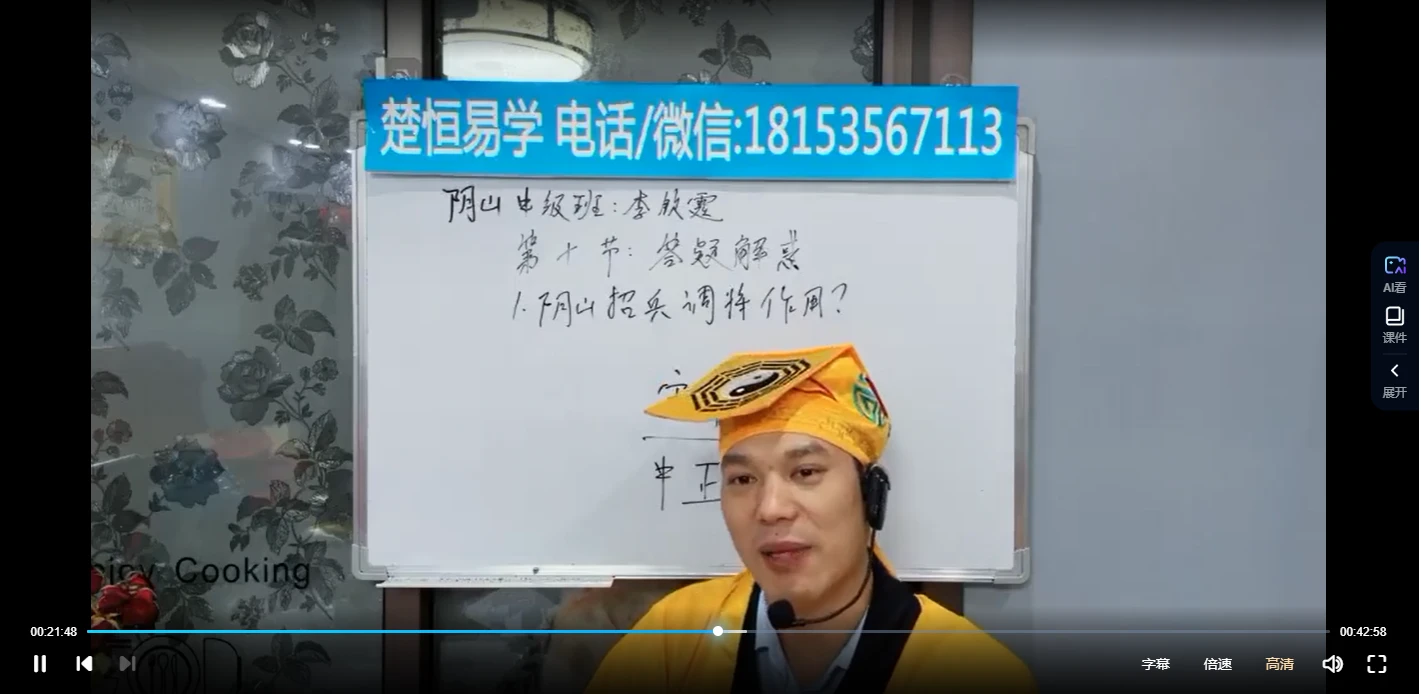 楚恒易学 电话/微信:18153567113
阴山中级班:李欣霆
第十节:答疑解惑
1.阴山招兵调将作用?
中正
icy Cooking
AI看
课件
展开
00:21:48
00:42:58
字幕
倍速
高清